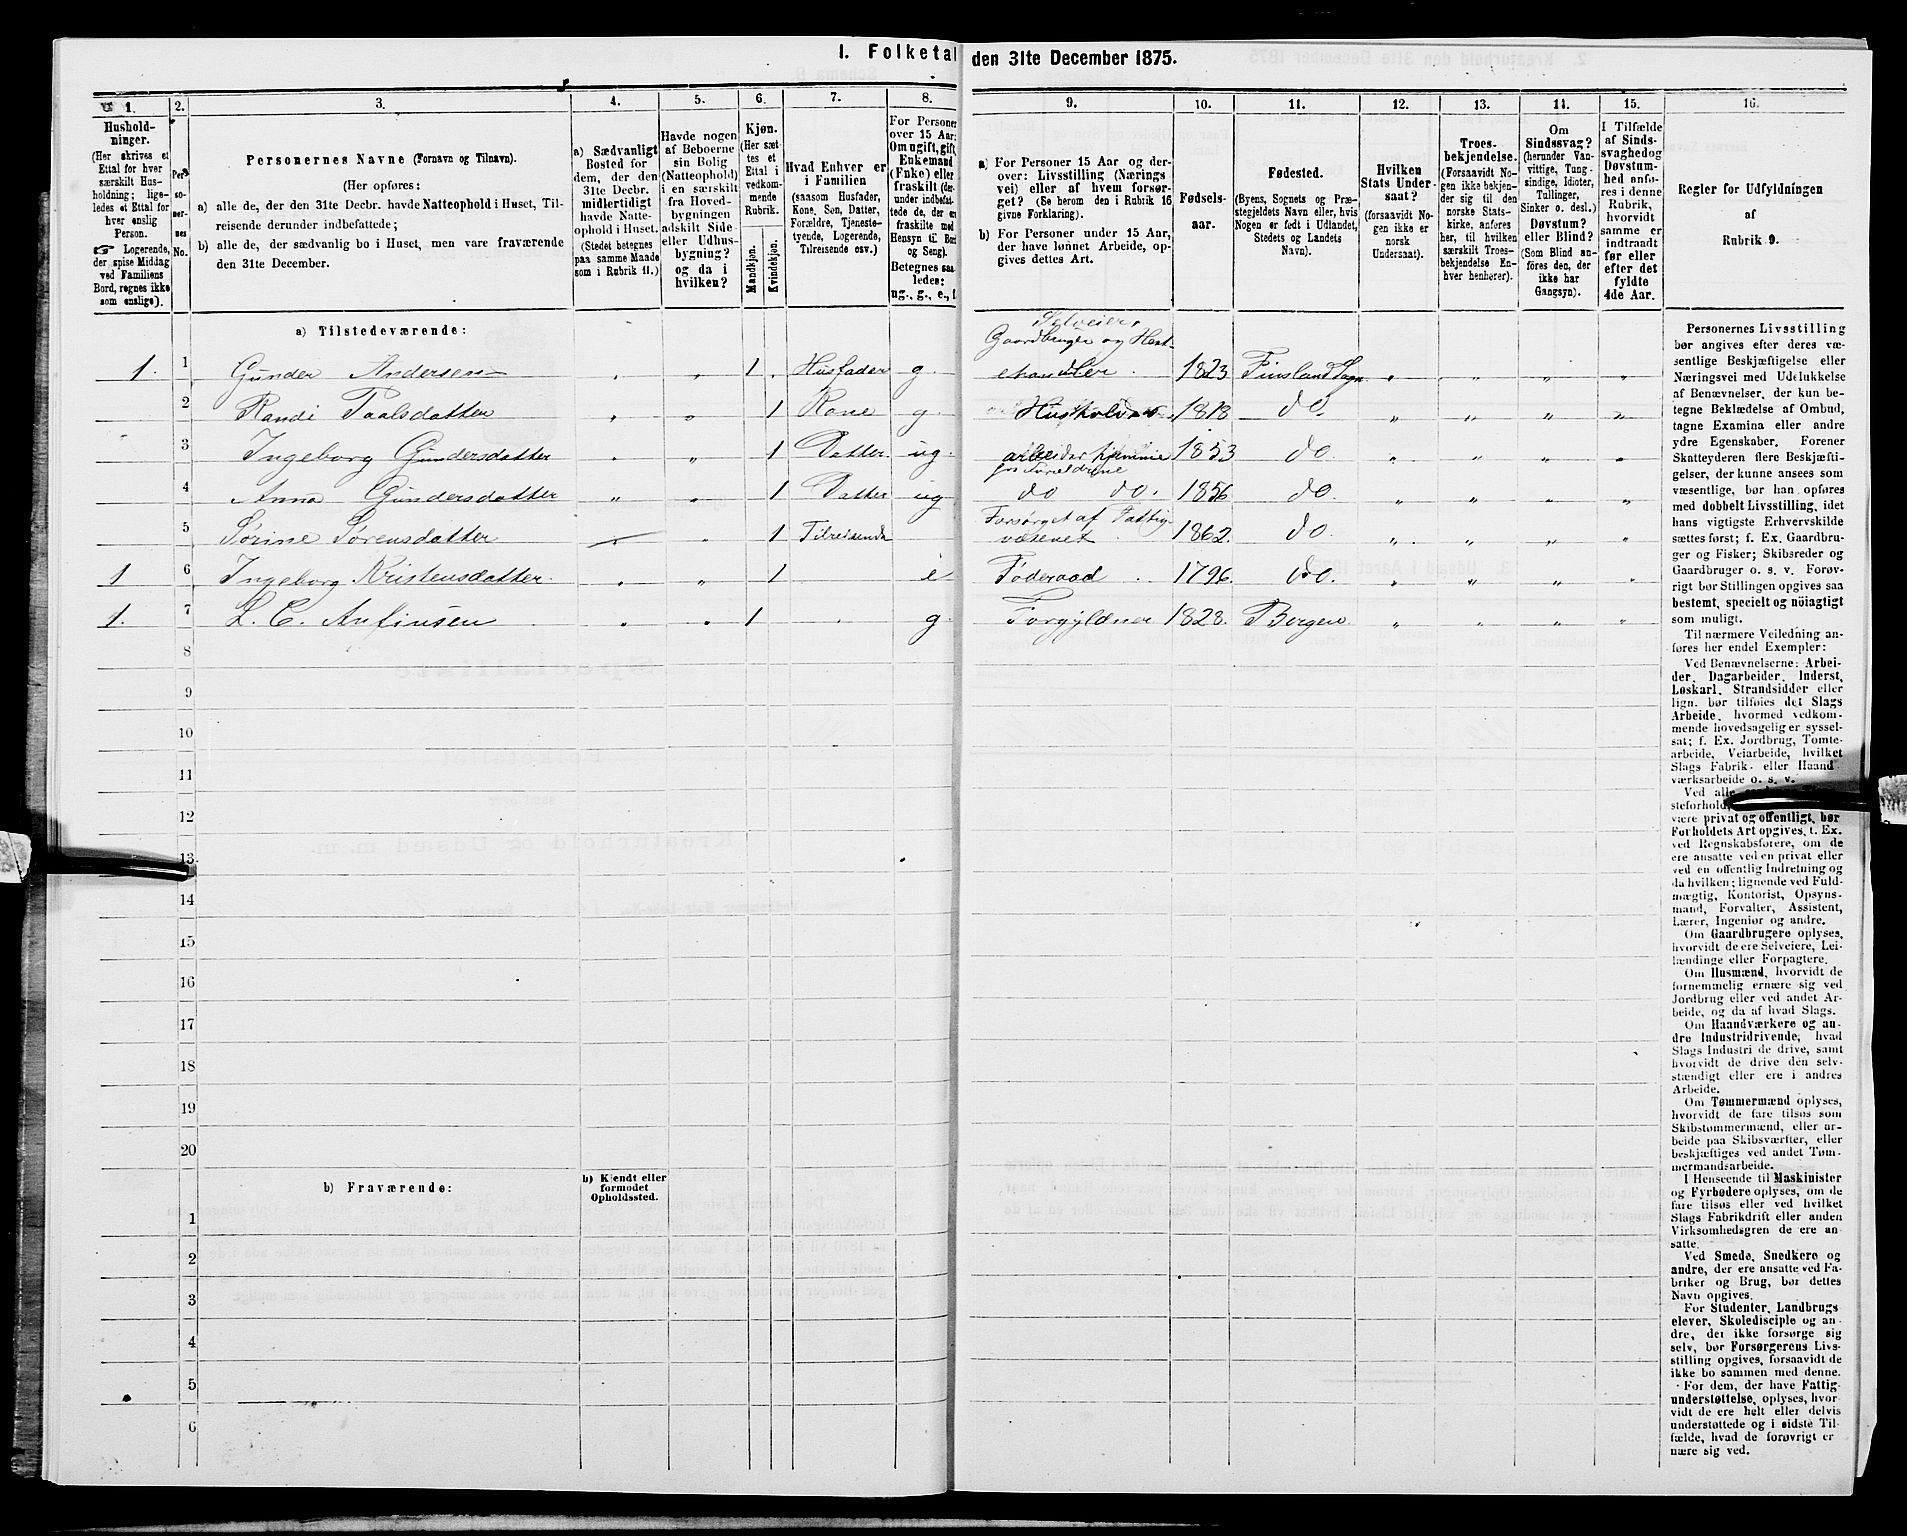 1. Folketal den 31te December 1875.
1.
Hushold-
ninger.
(Her skrives et
Ettal for hver
særskilt Hus-
holdning; lige-
ledes et Ettal for
hver enslig
Person.
☞ Logerende,
der spise Middag
ved Familiens
Bord, regnes ikke
som enslige).
2.
Per-
so-
ner-
nes
No.
3.
Personernes Navne (Fornavn og Tilnavn).
(Her opføres:
a) alle de, der den 31te Decbr. havde Natteophold i Huset, Til-
reisende derunder indbefattede;
b) alle de, der sædvanlig bo i Huset, men vare fraværende
den 31te December.
4.
a) Sædvanligt
Bosted for
dem, der den
31te Decbr.
midlertidigt
havde Natte-
ophold i Huset.
(Stedet betegnes
paa samme Maade
som i Rubrik 11.)
5.
Havde nogen
af Beboerne
sin Bolig
(Natteophold)
i en særskilt
fra Hoved-
bygningen
adskilt Side-
eller Udhus-
bygning?
og da i
hvilken?
6.
Kjøn.
(Her sæt-
tes et
Ettal i
vedkom-
mende
Rubrik.
Mandkjøn.
Kvindekjøn.
7.
Hvad Enhver er
i Familien
(saasom Husfader,
Kone, Søn, Datter,
Forældre, Tjeneste-
tyende, Logerende,
Tilreisende osv.)
8.
For Personer
over 15 Aar:
Om ugift, gift,
Enkemand
(Enke) eller
fraskilt (der-
under indbefat-
tede de, der ere
fraskilte med
Hensyn til Bord
og Seng).
Betegnes saa-
ledes:
ug., g., e., f.
9.
a) For Personer 15 Aar og der-
over: Livsstilling (Nærings-
vei) eller af hvem forsør-
get? (Se herom den i Rubrik 16
givne Forklaring).
b) For Personer under 15 Aar,
der have lønnet Arbeide, op-
gives dettes Art.
10.
Fødsels-
aar.
11.
Fødested.
(Byens, Sognets og Præ-
stegjeldets Navn eller, hvis
Nogen er født i Udlandet,
Stedets og Landets
Navn).
12.
Hvilken
Stats Under-
saat?
(forsaavidt No-
gen ikke er
norsk
Undersaat).
13.
Troes-
bekjendelse.
(Forsaavidt No-
gen ikke bekjen-
der sig til den
norske Stats-
kirke, anføres
her, til hvilken
særskilt Troes-
bekjendelse En-
hver henhører).
14.
Om
Sindssvag?
(herunder Van-
vittige, Tung-
sindige, Idioter,
Tullinger,
Sinker o. desl.)
Døvstum?
eller Blind?
(Som Blind an-
føres den, der
ikke har
Gangsyn).
15.
I Tilfælde
af Sinds-
svaghed og
Døvstum-
hed anfø-
res i denne
Rubrik,
hvorvidt
samme er
indtraadt
før eller
efter det
fyldte
4de Aar.
16.
Regler for Udfyldningen
af
Rubrik 9.
a) Tilstedeværende:
Selveier,
Gaardbruger og Hest-
1. 1 Gunder Andersen „ „ 1 . Husfader g. ehandler. 1823 Finsland Sogn „ „ „ „
2 Randi Paalsdatter „ „ 1 Kone g. Husholdn 1818 do. „ „ „ „
3 Ingeborg Gundersdatter „ „ 1 Datter ug. arbeider hjemme 1853 do. „ „ „ „
for Forældrene
4 Anna Gundersdatter „ „ 1 Datter ug do do. 1856 do. „ „ „ „
Forsørget af Fattig-
5 Sørine Sørensdatter „ 1 Tilreisende væsenet. 1862. do. „ „ „ „
1 6 Ingeborg Kristensdatter. „ „ 1 e Føderaad 1796. do. „ „ „ „
1. 7 L. C. Anfinsen „ „ 1 g. Forgyldner 1828. Bergen. „ „ „ „
8
9
10
11
12
13
14
15
16
17
18
19
20
b) Fraværende:
b) Kjendt eller
formodet
Opholdssted.
1
2
3
4
5
6
Personernes Livsstilling
bør angives efter deres væ-
sentlige Beskjæftigelse eller
Næringsvei med Udelukkelse
af Benævnelser, der kun be-
tegne Beklædelse af Ombud,
tagne Examina eller andre
ydre Egenskaber. Forener
Skatteyderen flere Beskjæfti-
gelser, der kunne ansees som
væsentlige, bør han opføres
med dobbelt Livsstilling, idet
hans vigtigste Erhvervskilde
sættes først; f. Ex. Gaardbru-
ger og Fisker; Skibsreder og
Gaardbruger o. s. v. Forøv-
rigt bør Stillingen opgives saa
bestemt, specielt og nøiagtigt
som muligt.
Til nærmere Veiledning an-
føres her endel Exempler:
Ved Benævnelserne: Arbei-
der, Dagarbeider, Inderst,
Løskarl, Strandsidder eller
lign. bør tilføies det Slags
Arbeide, hvormed vedkom-
mende hovedsagelig er syssel-
sat; f. Ex. Jordbrug, Tomte-
arbeide, Veiarbeide, hvilket
Slags Fabrik- eller Haand-
værksarbeide o. s. v.
Ved alle
steforhold,
være privat og offentligt, bør
Forholdets Art opgives, t. Ex.
ved Regnskabsførere, om de
ere ansatte ved en privat eller
ved en offentlig Indretning og
da hvilken; lignende ved Fuld-
mægtig, Kontorist, Opsyns-
mand, Forvalter, Assistent,
Lærer, Ingeniør og andre.
Om Gaardbrugere oplyses,
hvorvidt de ere Selveiere, Lei-
lændinge eller Forpagtere.
Om Husmænd, hvorvidt de
fornemmelig ernære sig ved
Jordbrug eller ved andet Ar-
beide, og da af hvad Slags.
Om Haandværkere og an-
dre Industridrivende, hvad
Slags Industri de drive, samt
hvorvidt de drive den selv-
stændigt eller ere i andres
Arbeide.
Om Tømmermænd oplyses,
hvorvidt de fare tilsøs som
Skibstømmermænd, eller ar-
beide paa Skibsværfter, eller
beskjæftiges ved andet Tøm-
mermandsarbeide.
I Henseende til Maskinister
og Fyrbødere oplyses, om de
fare tilsøs eller ved hvilket
Slags Fabrikdrift eller anden
Virksomhedsgren de ere an-
satte.
Ved Smede, Snedkere og
andre, der ere ansatte ved Fa-
briker og Brug, bør dettes
Navn opgives.
For Studenter, Landbrugs-
elever, Skoledisciple og an-
dre, der ikke forsørge sig
selv, bør Forsørgerens Livs-
stilling opgives, forsaavidt de
ikke bo sammen med denne.
For dem, der have Fattig-
understøttelse, oplyses, hvor-
vidt de ere helt eller delvis
understøttede og i sidste Til-
fælde, hvad de forøvrigt er-
nære sig ved.